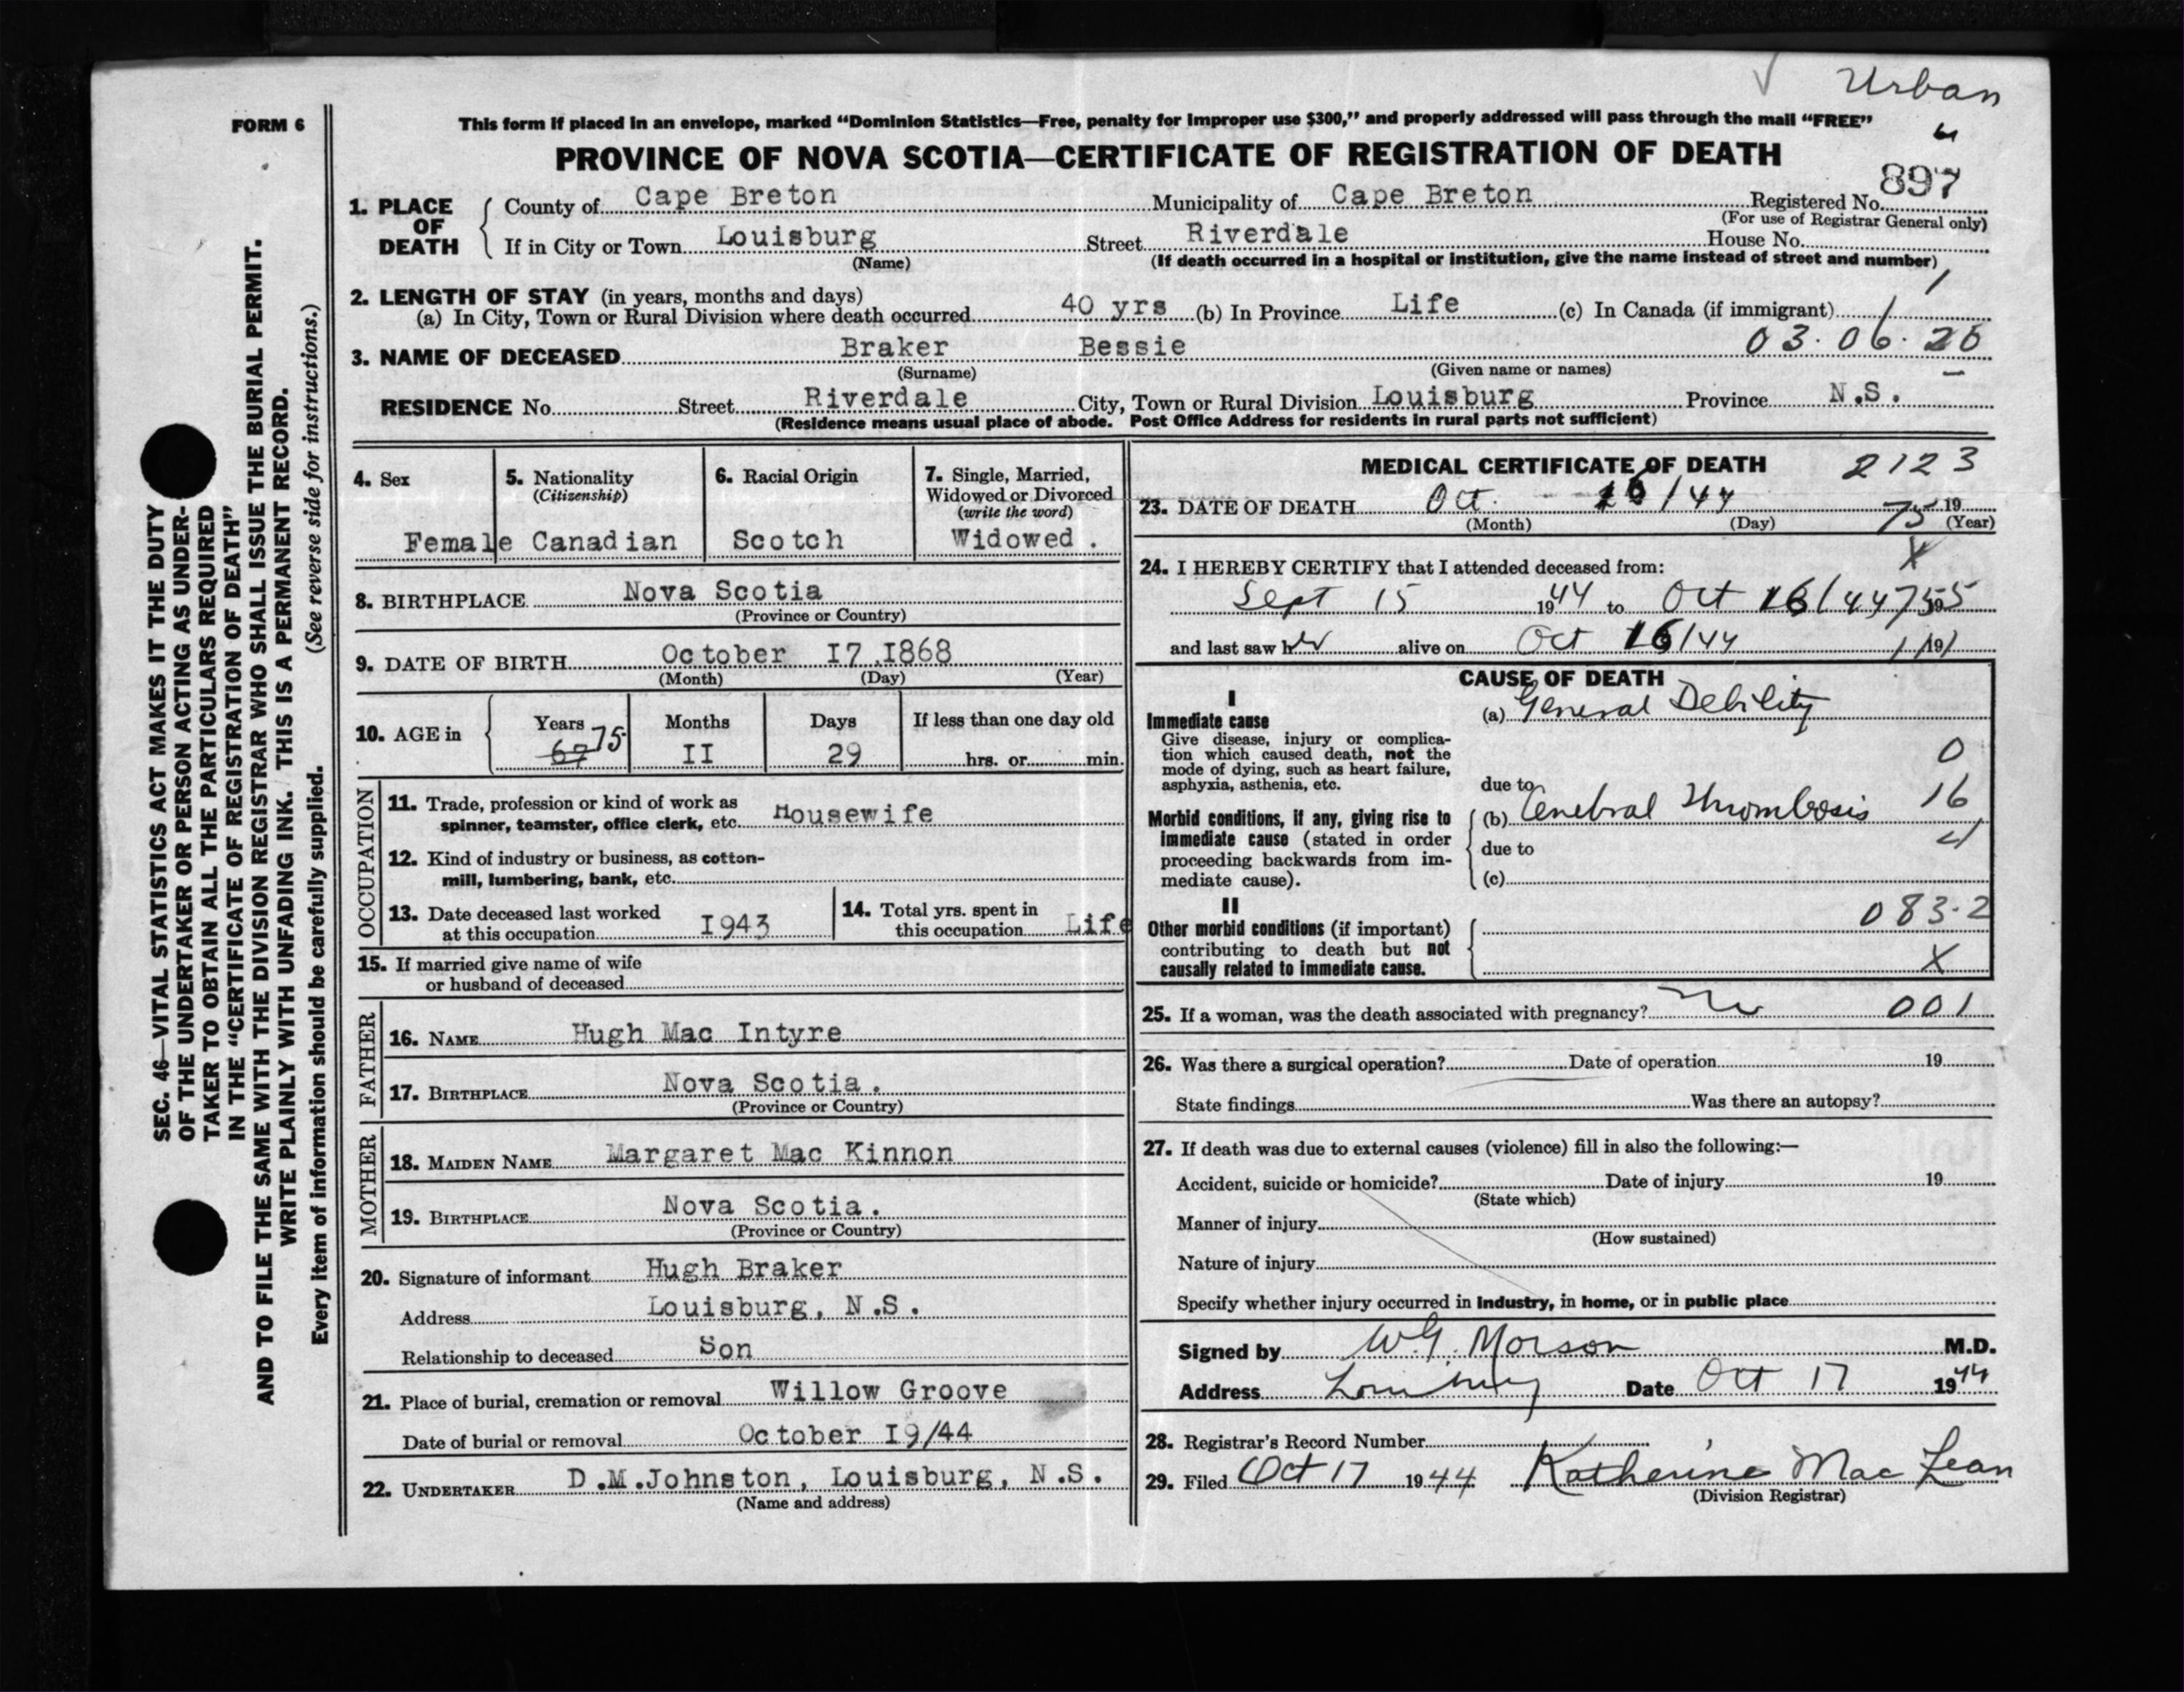 Urban
FORM 6
This form if placed in an envelope, marked “Dominion Statistics—Free, penalty for improper use $300,” and properly addressed will pass through the mail “FREE”
PROVINCE OF NOVA SCOTIA—CERTIFICATE OF REGISTRATION OF DEATH
897
1. PLACE OF DEATH County of Cape Breton Municipality of Cape Breton Registered No.
(For use of Registrar General only)
If in City or Town Louisburg Street Riverdale House No.
(Name) (If death occurred in a hospital or institution, give the name instead of street and number)
2. LENGTH OF STAY (in years, months and days)
(a) In City, Town or Rural Division where death occurred 40 yrs (b) In Province Life (c) In Canada (if immigrant)
3. NAME OF DECEASED Braker Bessie 03.06.20
(Surname) (Given name or names)
RESIDENCE No. Street Riverdale City, Town or Rural Division Louisburg Province N.S.
(Residence means usual place of abode. Post Office Address for residents in rural parts not sufficient)
4. Sex
Female
5. Nationality
(Citizenship)
Canadian
6. Racial Origin
Scotch
7. Single, Married,
Widowed or Divorced
(write the word)
Widowed .
8. BIRTHPLACE Nova Scotia
(Province or Country)
9. DATE OF BIRTH October I7 .I868
(Month) (Day) (Year)
10. AGE in Years Months Days If less than one day old
67 75 II 29 hrs. or min.
OCCUPATION
11. Trade, profession or kind of work as
spinner, teamster, office clerk, etc. Housewife
12. Kind of industry or business, as cotton-
mill, lumbering, bank, etc.
13. Date deceased last worked
at this occupation I943
14. Total yrs. spent in
this occupation Life
15. If married give name of wife
or husband of deceased
FATHER
16. NAME Hugh Mac Intyre
17. BIRTHPLACE Nova Scotia.
(Province or Country)
MOTHER
18. MAIDEN NAME Margaret Mac Kinnon
19. BIRTHPLACE Nova Scotia.
(Province or Country)
20. Signature of informant Hugh Braker
Address Louisburg, N.S.
Relationship to deceased Son
21. Place of burial, cremation or removal Willow Groove
Date of burial or removal October I9/44
22. UNDERTAKER D.M.Johnston, Louisburg, N.S.
(Name and address)
MEDICAL CERTIFICATE OF DEATH 2123
23. DATE OF DEATH Oct. 16/44 75 19
(Month) (Day) (Year)
X
24. I HEREBY CERTIFY that I attended deceased from:
Sept 15 1944 to Oct 16/44 19
and last saw her alive on Oct 16/44 19
CAUSE OF DEATH
I
Immediate cause
Give disease, injury or complica-
tion which caused death, not the
mode of dying, such as heart failure,
asphyxia, asthenia, etc.
(a) General Debility
0
due to
Morbid conditions, if any, giving rise to
immediate cause (stated in order
proceeding backwards from im-
mediate cause).
(b) Cerebral Thrombosis 16
due to
(c)
II
083.2
Other morbid conditions (if important)
contributing to death but not
causally related to immediate cause.
X
25. If a woman, was the death associated with pregnancy? No 001
26. Was there a surgical operation? Date of operation 19
State findings Was there an autopsy?
27. If death was due to external causes (violence) fill in also the following:—
Accident, suicide or homicide? Date of injury 19
(State which)
Manner of injury
(How sustained)
Nature of injury
Specify whether injury occurred in industry, in home, or in public place
Signed by W.G. Morson M.D.
Address Louisburg Date Oct 17 1944
28. Registrar's Record Number
29. Filed Oct 17 1944 Katherine Mac Lean
(Division Registrar)
SEC. 46—VITAL STATISTICS ACT MAKES IT THE DUTY
OF THE UNDERTAKER OR PERSON ACTING AS UNDER-
TAKER TO OBTAIN ALL THE PARTICULARS REQUIRED
IN THE “CERTIFICATE OF REGISTRATION OF DEATH”
AND TO FILE THE SAME WITH THE DIVISION REGISTRAR WHO SHALL ISSUE THE BURIAL PERMIT.
WRITE PLAINLY WITH UNFADING INK. THIS IS A PERMANENT RECORD.
Every item of information should be carefully supplied. (See reverse side for instructions.)